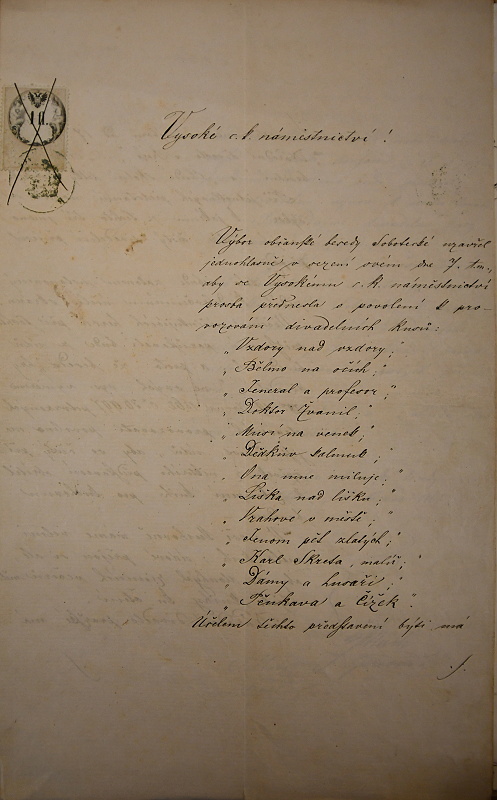 10.
Vysoké c. k. náměstnictví!
Výbor občanské besedy Sobotecké uzavřel
jednohlasně v sezení svém dne 7. t.m.,
aby se Vysokému c. k. náměstnictví
prosba přednesla o povolení k pro-
vozování divadelních kusů:
„Vzdory nad vzdory;"
„Bělmo na očích;"
„Jeneral a profesor;"
„Doktor Žvanil;"
„Musí na venek;"
„Dědkův kalmuk;"
„Ona mne miluje;"
„Liška nad lišku;"
„Vrahové v městě;"
„Jenom pět zlatých;"
„Karl Skreta, malíř;"
„Dámy a husaři;"
„Pěnkava a Čížek".
Účelem těchto představení býti má
./.